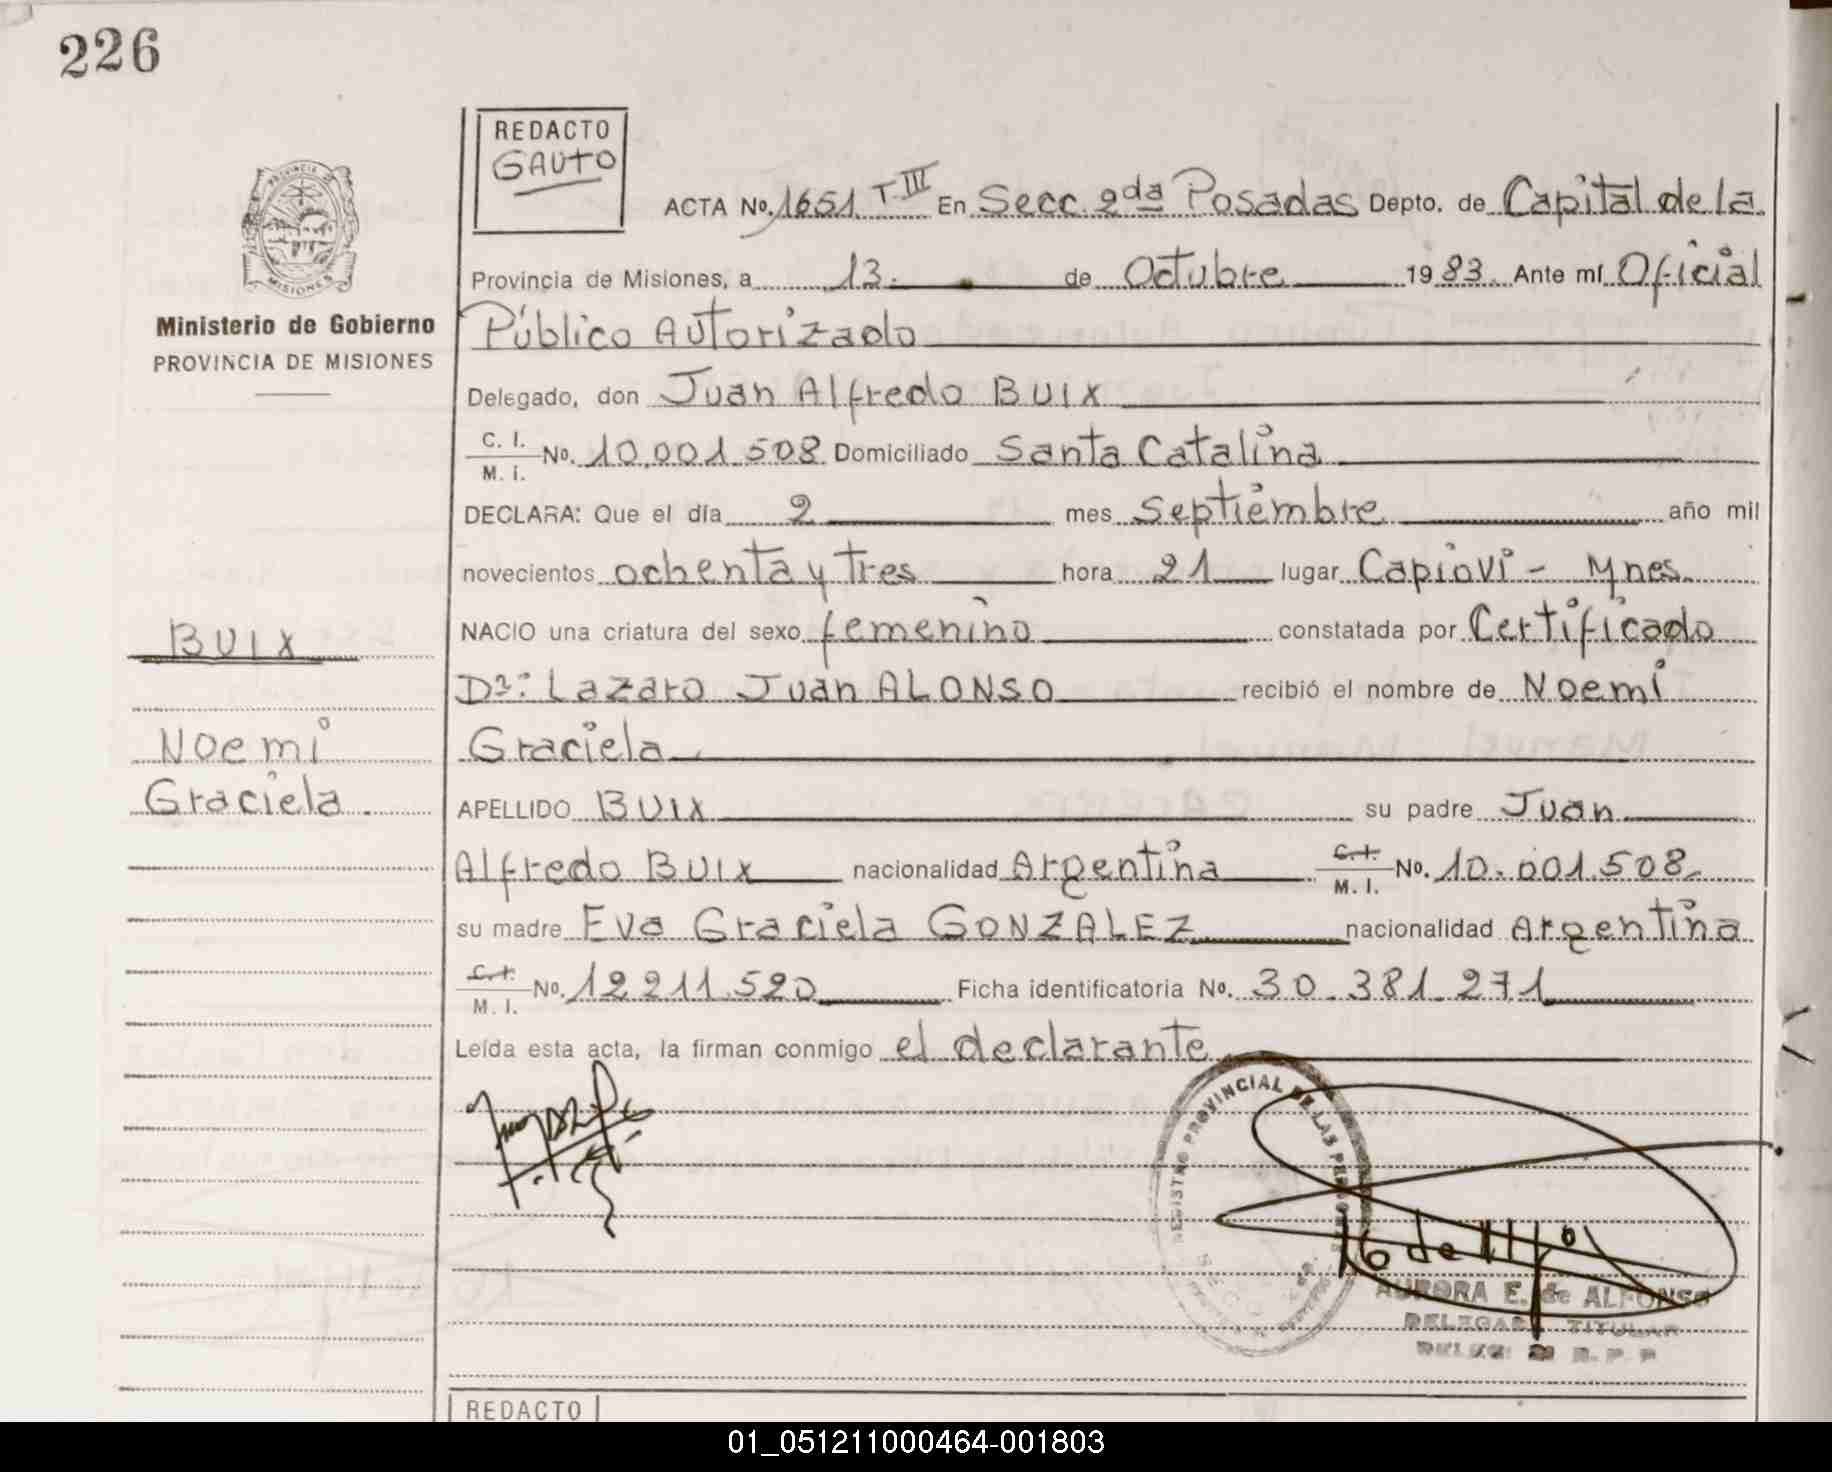 226
REDACTO
GAUTO
ACTA No. 1651 T-III En Secc. 2da Posadas Depto. de Capital de la
Provincia de Misiones, a 13. de Octubre 1983. Ante mí Oficial
Público Autorizado
Delegado, don Juan Alfredo BUIX
C. I.
M. I. No. 10.001.508 Domiciliado Santa Catalina
DECLARA: Que el día 2 mes septiembre año mil
novecientos ochenta y tres hora 21 lugar Capioví - Mnes.
NACIO una criatura del sexo femenino constatada por Certificado
Dr: Lazaro Juan ALONSO recibió el nombre de Noemí
Graciela
APELLIDO BUIX su padre Juan
Alfredo BUIX nacionalidad Argentina C. I.
M. I. No. 10.001.508.
su madre Eva Graciela GONZALEZ nacionalidad Argentina
C. I.
M. I. No. 12.211.520 Ficha identificatoria No. 30.381.271
Leída esta acta, la firman conmigo el declarante
PROVINCIA DE
MISIONES
Ministerio de Gobierno
PROVINCIA DE MISIONES
BUIX
Noemí
Graciela.
REGISTRO PROVINCIAL DE LAS PERSONAS
AURORA E. de ALFONSO
DELEGADA TITULAR
REDACTO
01_051211000464-001803